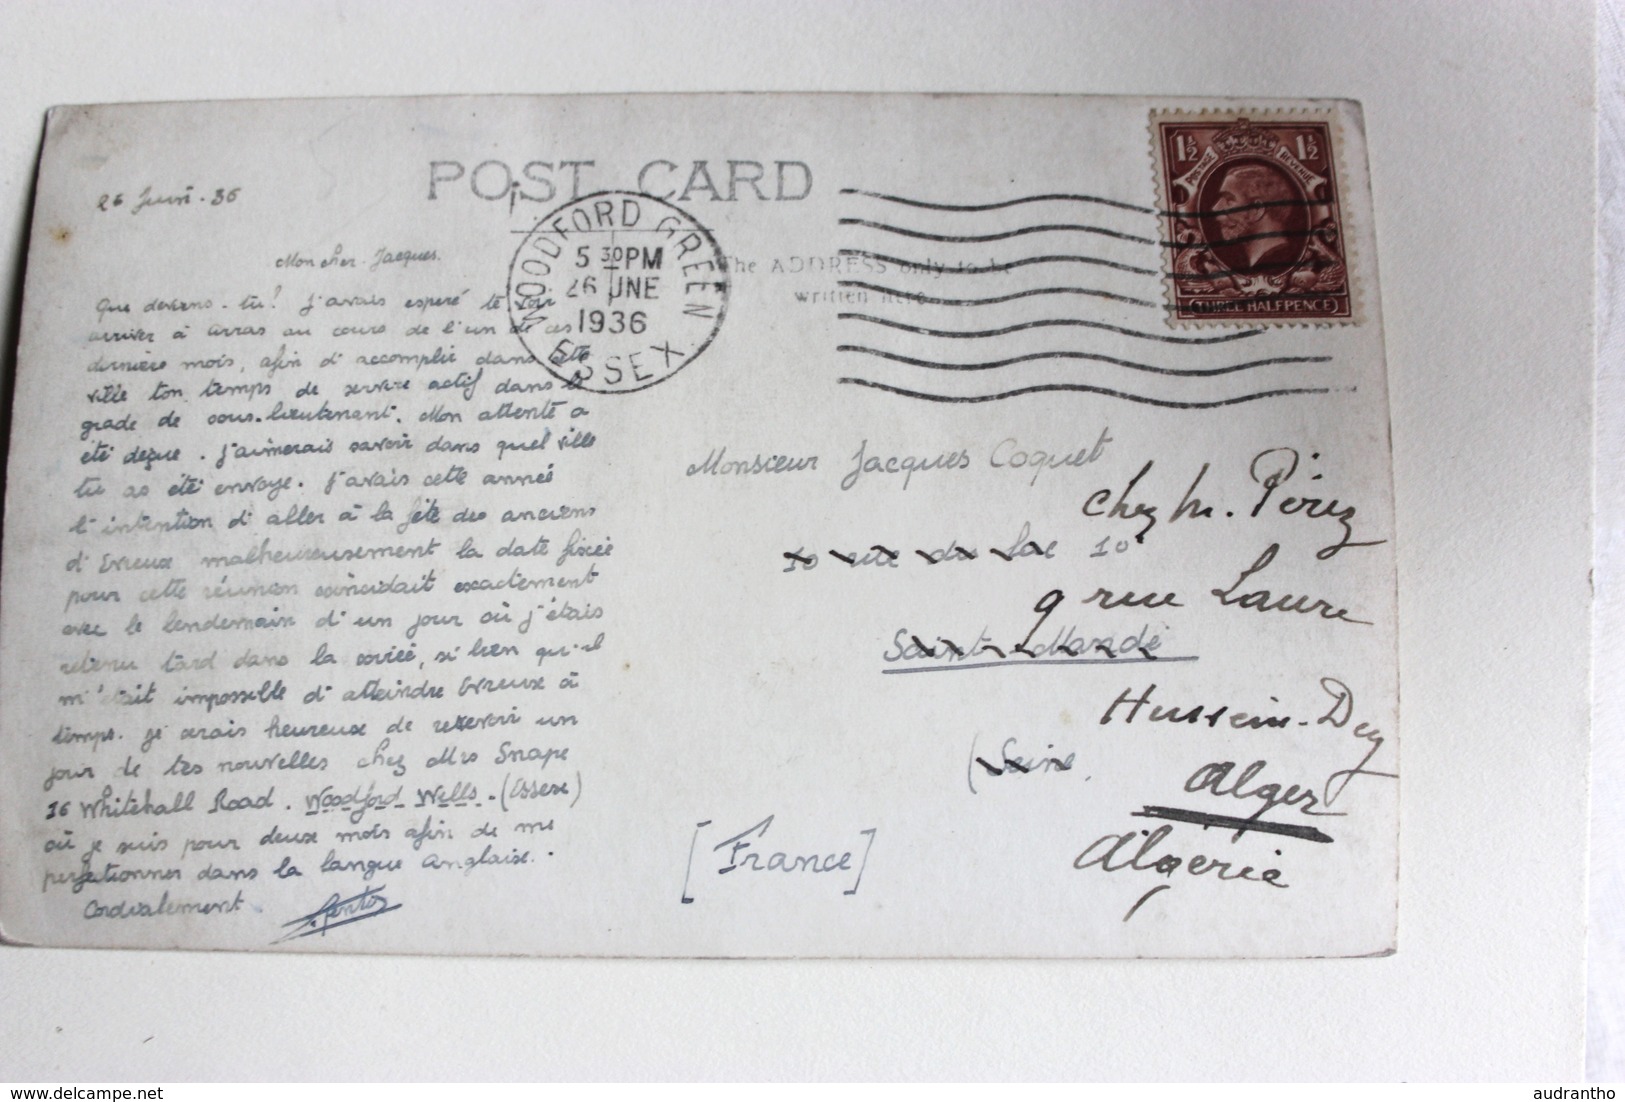 POST CARD
26 Juin. 36
WOODFORD GREEN
5 30 PM
26 JNE
1936
ESSEX
1½ 1½
POSTAGE REVENUE
THREE HALFPENCE
The ADDRESS only to be
written here
Mon cher Jacques.
Que deviens-tu? J'avais esperé te voir
arriver à Arras au cours de l'un de ces
derniers mois, afin d'accomplir dans cette
ville ton temps de service actif dans le
grade de sous-lieutenant. Mon attente a
été deçue. J'aimerais savoir dans quel ville
tu as été envoye. J'avais cette année
l'intention d'aller à la fête des anciens
d'Evreux malheureusement la date fixée
pour cette réunion coïncidait exactement
avec le lendemain d'un jour où j'étais
retenu tard dans la soirée, si bien qu'il
m'était impossible d'atteindre Evreux à
temps. Je serais heureux de recevoir un
jour de tes nouvelles chez Mrs Snape
36 Whitehall Road. Woodford Wells. (Essex)
où je suis pour deux mois afin de me
perfectionner dans la langue Anglaise.
Cordialement
Monsieur Jacques Coquet
chez M. Pérez
10 rue du Lac 10
9 rue Laure
Saint-Mandé
Hussein-Dey
(Seine
Alger
[France]
Algérie
audrantho
delcampe.net